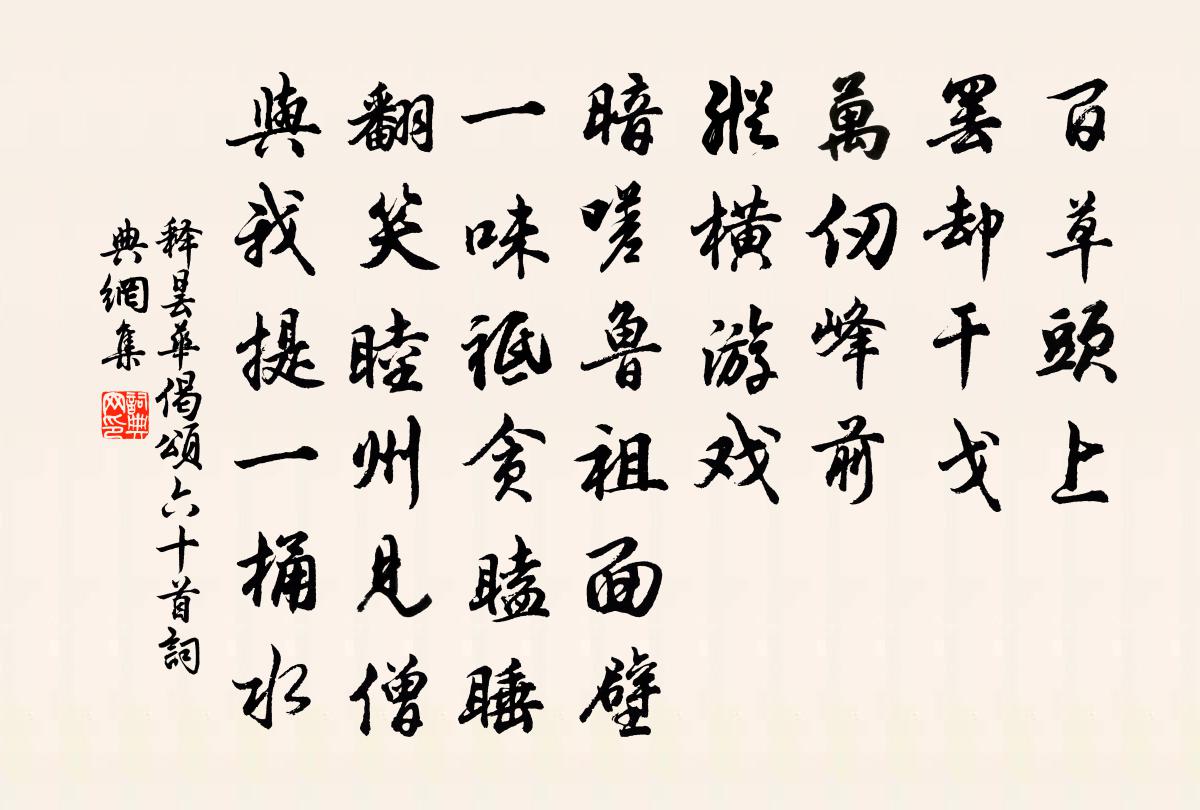 百草頭上
罢却干戈
萬仞峰前
縱橫游戏
暗嗟鲁祖面壁
一味祗贪瞌睡
翻笑睦州見僧
與我提一桶水
释曇華偈頌六十首詞
典網集
詞典網印